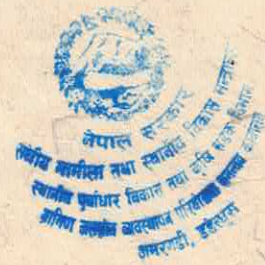 नेपाल सरकार
संघीय मामिला तथा स्थानीय विकास मन्त्रालय
स्थानीय पूर्वाधार विकास तथा कृषि सडक विभाग
अमरगढी, डडेल्धुरा